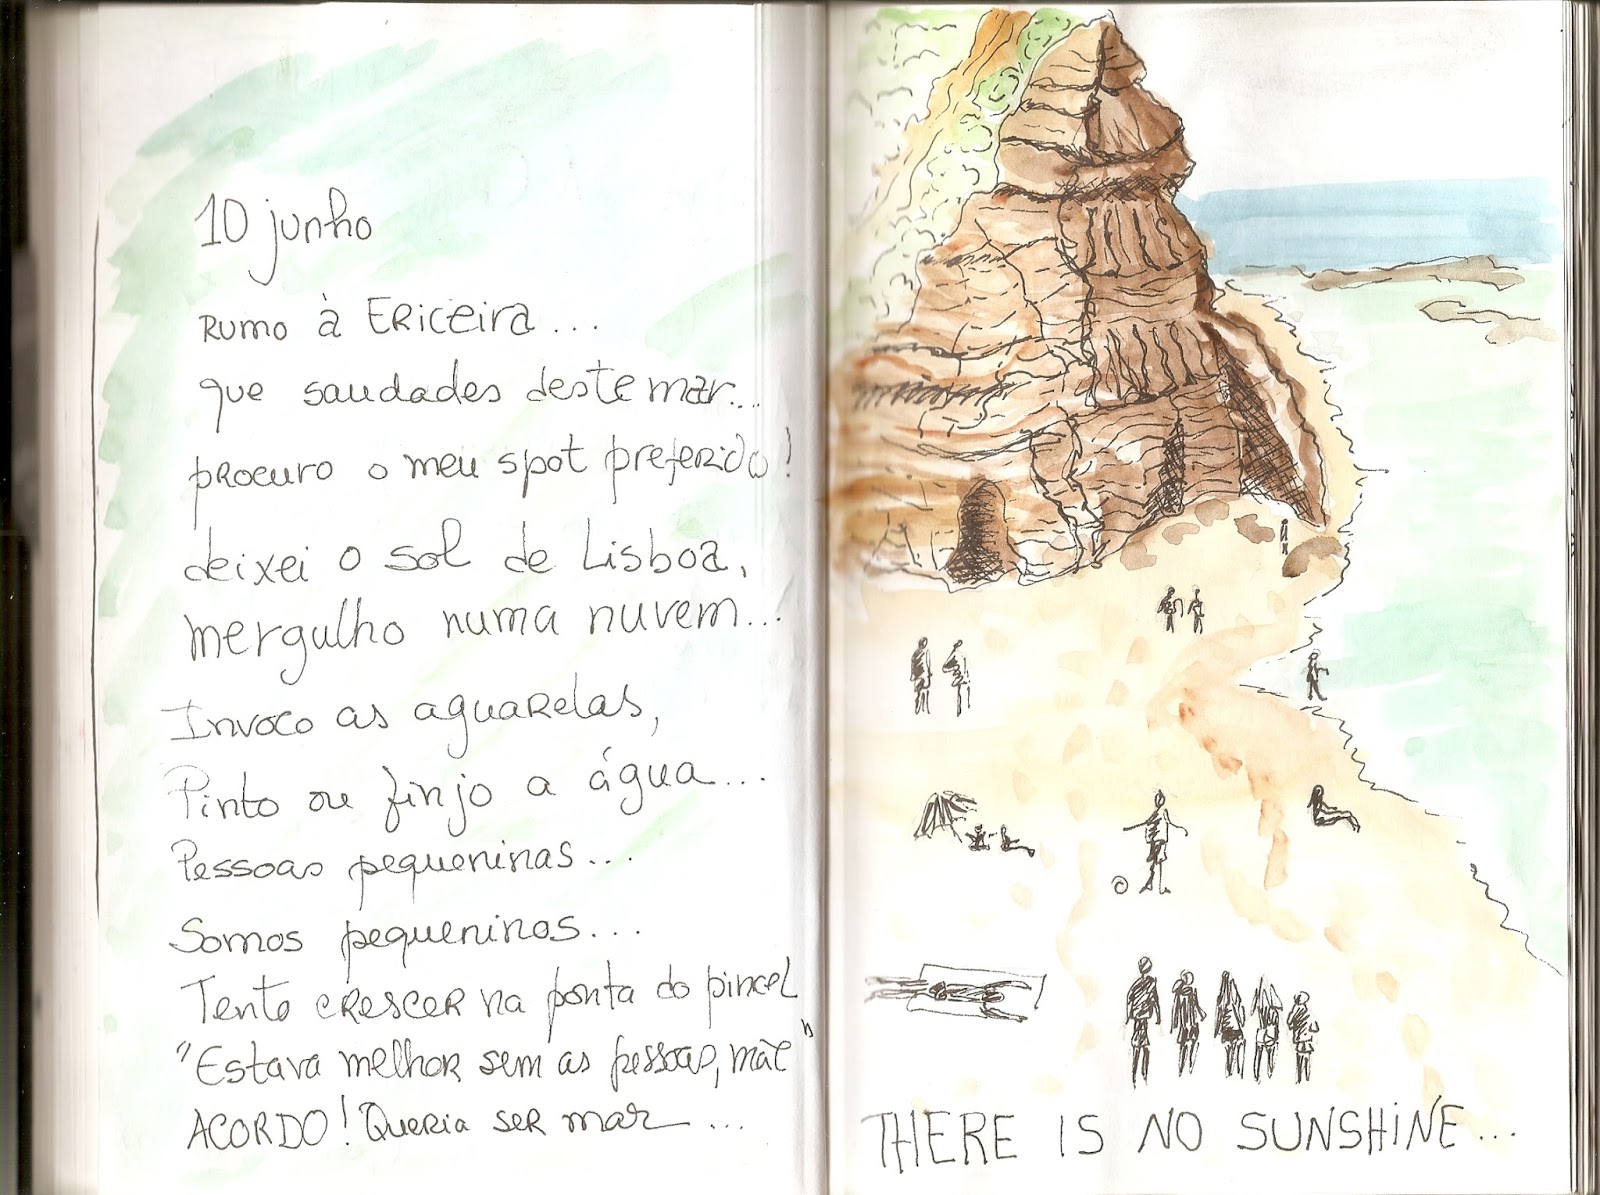 10 junho
Rumo à Ericeira...
que saudades deste mar...
procuro o meu spot preferido!
deixei o sol de Lisboa,
mergulho numa nuvem...
Invoco as aguarelas,
Pinto ou finjo a água...
Pessoas pequeninas...
Somos pequeninos...
Tento crescer na ponta do pincel
"Estava melhor sem as pessoas, mãe"
ACORDO! Queria ser mar...
THERE IS NO SUNSHINE...